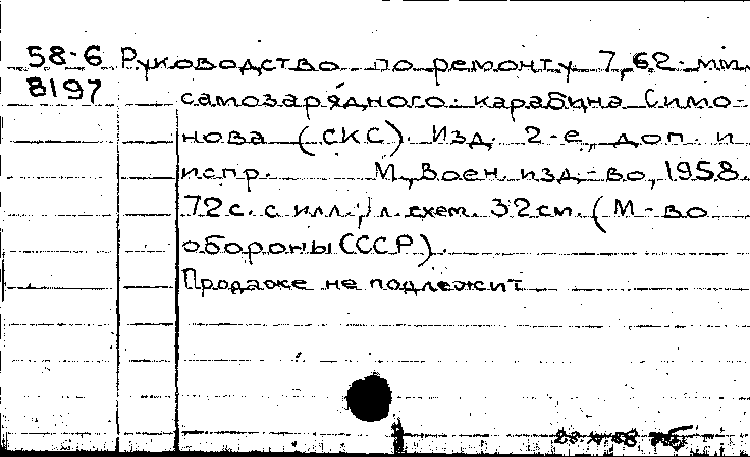 58-6 Руководство по ремонту 7,62-мм
8197 самозарядного карабина Симо-
нова (СКС). Изд. 2-е, доп. и
испр. М., Воен. изд-во, 1958.
72 с. с илл.; л. схем. 32 см. (М-во
обороны СССР).
Продаже не подлежит